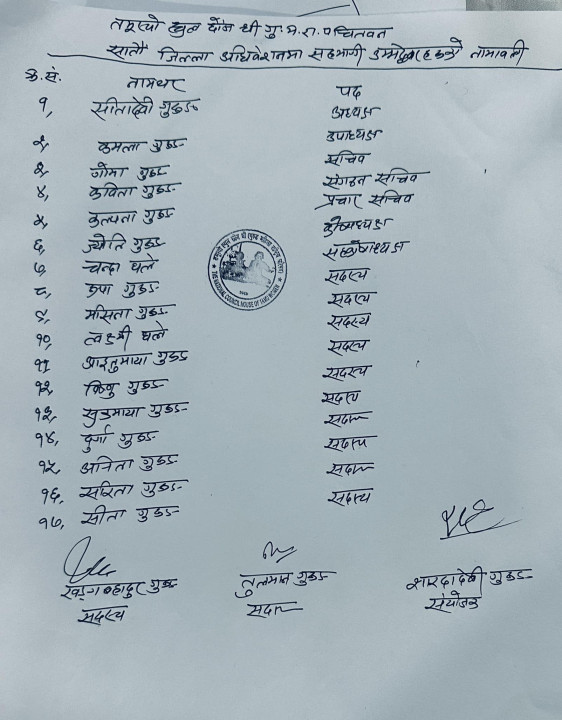 तमूस्यो ह्युल दोंज धीं गु.म.रा. प चितवन
सातौं जिल्ला अधिवेशनमा सहभागी उम्मेद्वारहरूको नामावली
क्र.सं. नामथर पद
१, सीतादेवी गुरुङ अध्यक्ष
२, कमला गुरुङ उपाध्यक्ष
३, गोमा गुरुङ सचिव
४, कविता गुरुङ संगठन सचिव
५, कल्पना गुरुङ प्रचार सचिव
६, ज्योति गुरुङ कोषाध्यक्ष
७, चन्द्रा घले सहकोषाध्यक्ष
८, कृपा गुरुङ सदस्य
९, मसिता गुरुङ सदस्य
१०, लक्ष्मी घले सदस्य
११ आइतुमाया गुरुङ सदस्य
१२, किजु गुरुङ सदस्य
१३, सुकमाया गुरुङ सदस्य
१४, दुर्गा गुरुङ सदस्य
१५, अनिता गुरुङ सदस्य
१६, सरिता गुरुङ सदस्य
१७, सीता गुरुङ सदस्य
THE NATIONAL COUNCIL HOUSE OF TAMU WOMEN
खड्ग बहादुर गुरुङ तुलमान गुरुङ शारदादेवी गुरुङ
सदस्य सदस्य संयोजक